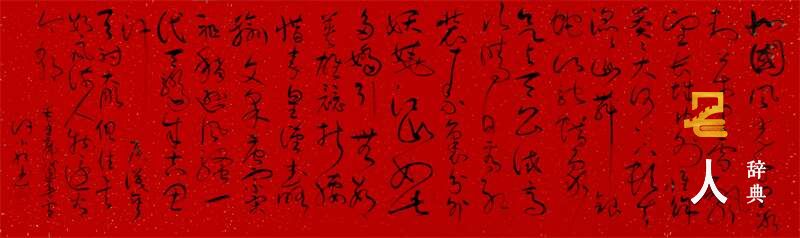 北國風光千里冰
封萬里雪飄
望長城內外惟餘
莽莽大河上下頓失
滔滔山舞銀
蛇原馳蠟象
欲與天公試比高
須晴日看紅
裝素裹分外
妖嬈江山如此
多嬌引無數
英雄競折腰
惜秦皇漢武略
輸文采唐宗宋
祖稍遜風騷一
代天驕成吉思
汗只識彎
弓射大雕俱往矣
數風流人物還看
今朝
名人
辞典